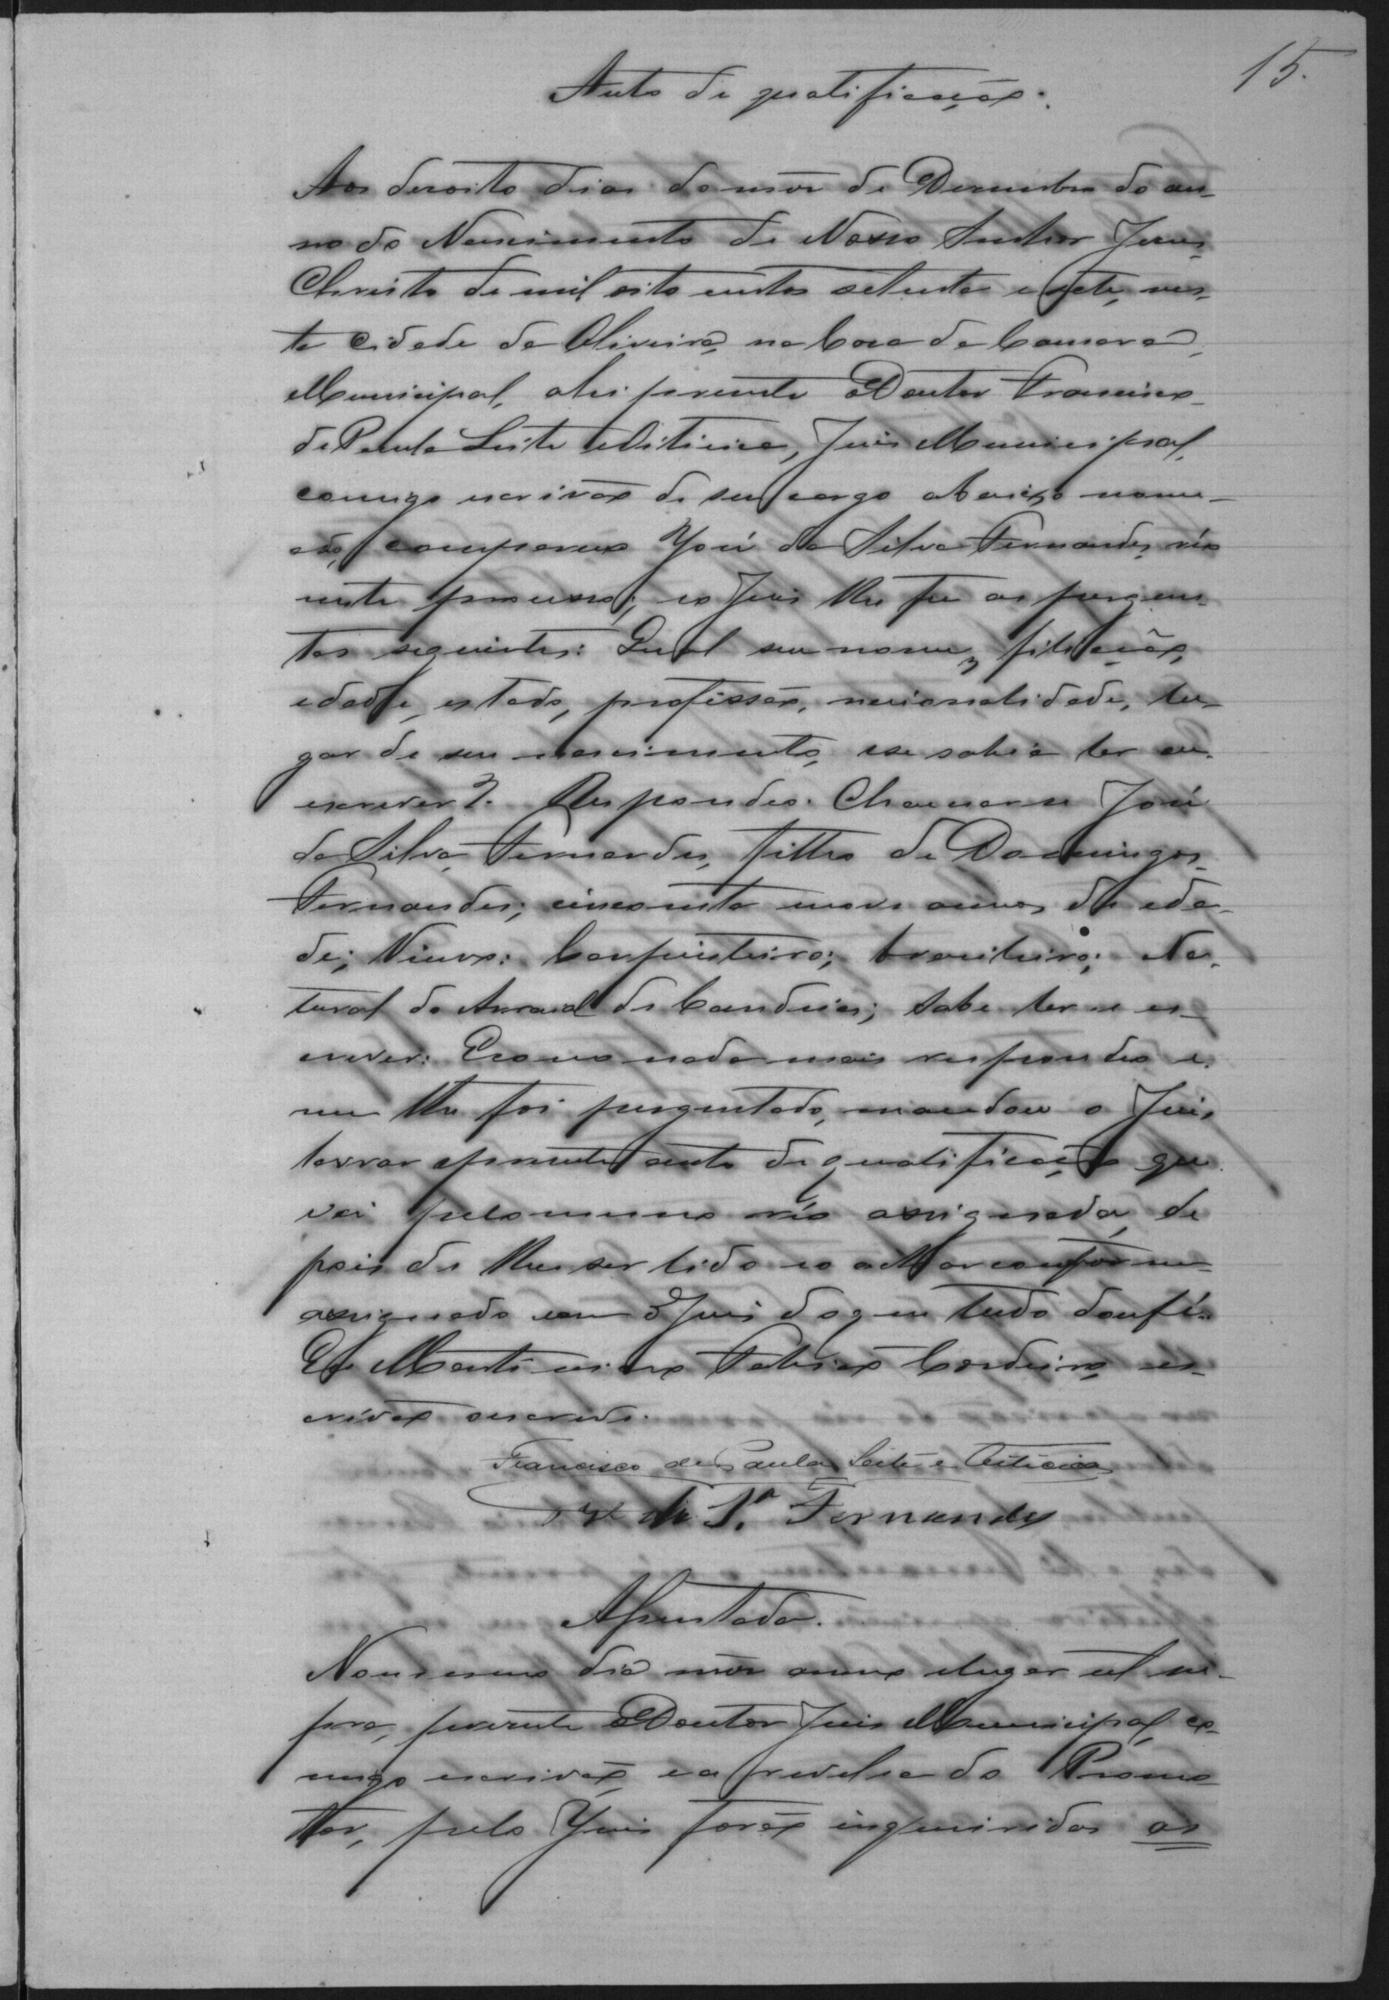 15.
Auto de qualificação.
Aos desoito dias do mes de Dezembro do an-
no do Nascimento de Nosso Senhor Jesus
Christo de mil oito centos setenta e sete, nes-
ta Cidade da Oliveira, na Casa da Camara
Municipal, ahi presente o Doutor Francisco
de Paula Leite e Oiticica, Juis Municipal,
comigo escrivão de seu cargo abaixo nome-
ado, compareceu José da Silva Fernandes, réo
neste processo; e o Juis lhe fes as pergun-
tas seguintes: Qual seu nome, filiação,
edade, estado, profissão, nacionalidade, lu-
gar de seu nascimento, e se sabia ler e
escrever? Respondeo. Chamar-se José
da Silva Fernandes, filho de Domingos
Fernandes; cincoenta annos de eda-
de; Viuvo: Carpinteiro; brasileiro; Na-
tural do Arraial de Candeias; sabe ler e es-
crever: E como nada mais respondeo e
nem lhe foi perguntado, mandou o Juis
lavrar o presente auto de qualificação que
vai pelo mesmo réo assignado, de
pois de lhe ser lido e o achar conforme
assignado com o Juis do que tudo dou fé.
Eu Martiniano Fabião Cordeiro es-
crivão escrevi.
Francisco de Paula Leite e Oiticica
José da S.ª Fernandes
Assentada.
No mesmo dia mes anno e lugar ut su-
pra, presente o Doutor Juis Municipal, co-
migo escrivão, e a revelia do Promo-
tor, pelo Juis forão inqueridas as